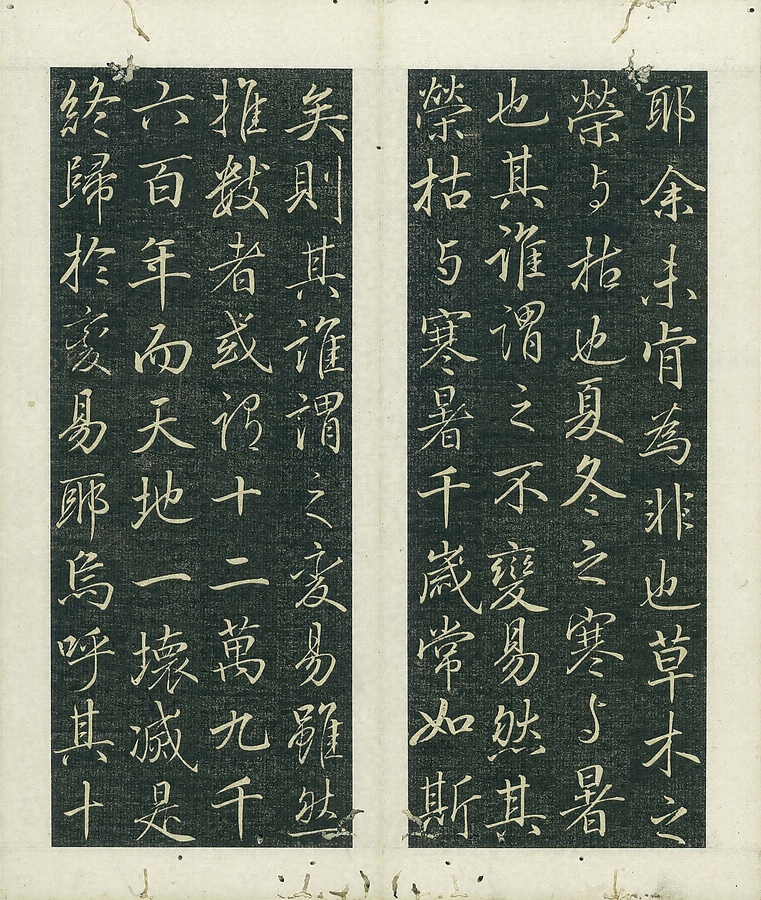 耶余未肯為非也草木之
榮与枯也夏冬之寒与暑
也其誰謂之不變易然其
榮枯与寒暑千歲常如斯
矣則其誰謂之變易雖然
推數者或謂十二萬九千
六百年而天地一壞滅是
終歸於變易耶烏呼其十